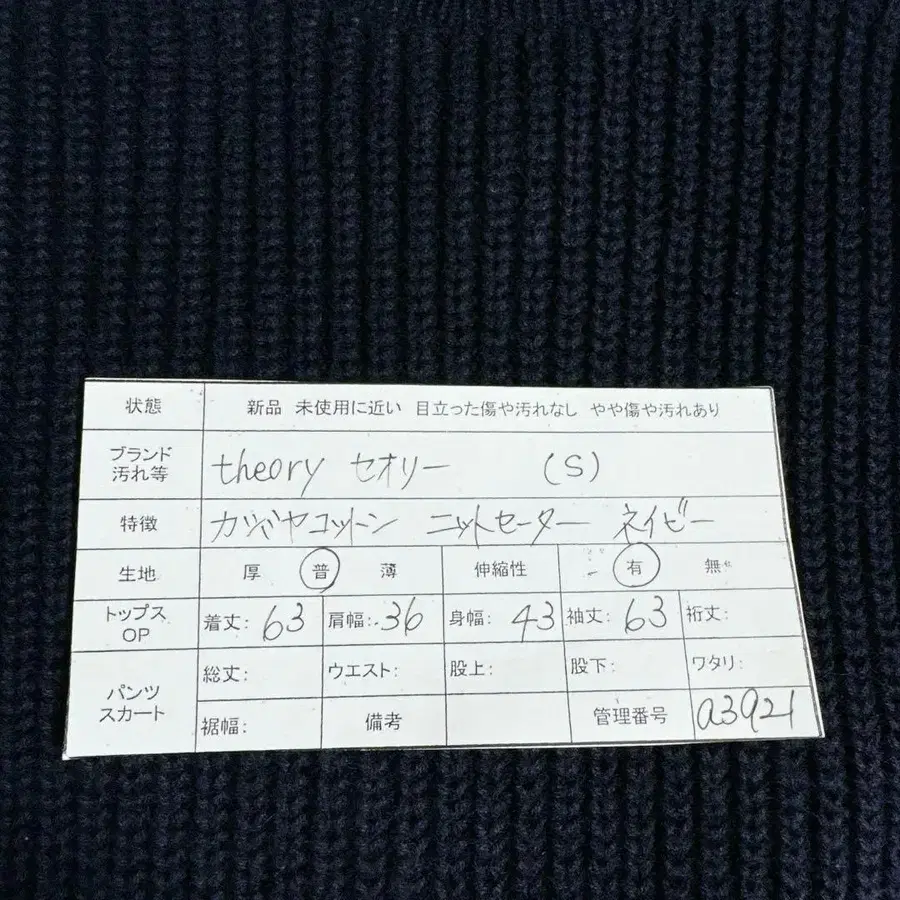 状態 新品 未使用に近い 目立った傷や汚れなし やや傷や汚れあり
ブランド
汚れ等 theory セオリー (S)
特徴 カシミヤコットン ニットセーター ネイビー
生地 厚 普 薄 伸縮性 有 無
トップス
OP 着丈: 63 肩幅: 36 身幅: 43 袖丈: 63 裄丈:
パンツ
スカート 総丈: ウエスト: 股上: 股下: ワタリ:
裾幅: 備考 管理番号 a3921